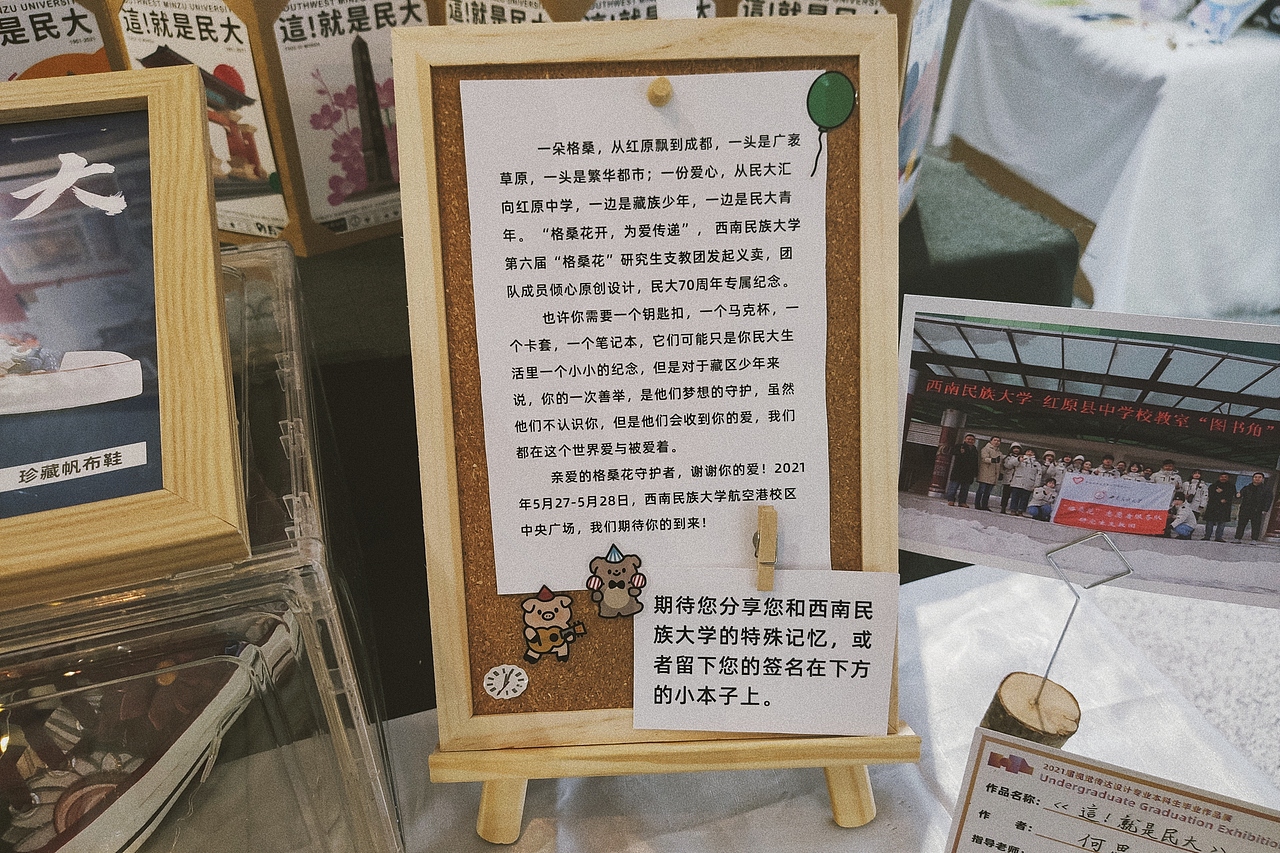 這!就是民大
這!就是民大
SOUTHWEST MINZU UNIVERSITY
大
珍藏帆布鞋
一朵格桑，从红原飘到成都，一头是广袤
草原，一头是繁华都市；一份爱心，从民大汇
向红原中学，一边是藏族少年，一边是民大青
年。“格桑花开，为爱传递”， 西南民族大学
第六届“格桑花”研究生支教团发起义卖，团
队成员倾心原创设计，民大70周年专属纪念。
也许你需要一个钥匙扣，一个马克杯，一
个卡套，一个笔记本，它们可能只是你民大生
活里一个小小的纪念，但是对于藏区少年来
说，你的一次善举，是他们梦想的守护，虽然
他们不认识你，但是他们会收到你的爱，我们
都在这个世界爱与被爱着。
亲爱的格桑花守护者，谢谢你的爱！2021
年5月27-5月28日，西南民族大学航空港校区
中央广场，我们期待你的到来！
期待您分享您和西南民
族大学的特殊记忆，或
者留下您的签名在下方
的小本子上。
西南民族大学-红原县中学校教室“图书角”
2021届视觉传达设计专业本科生毕业作品展
Undergraduate Graduation Exhibitio
作品名称：《這！就是民大》
作 者：何
指导老师：